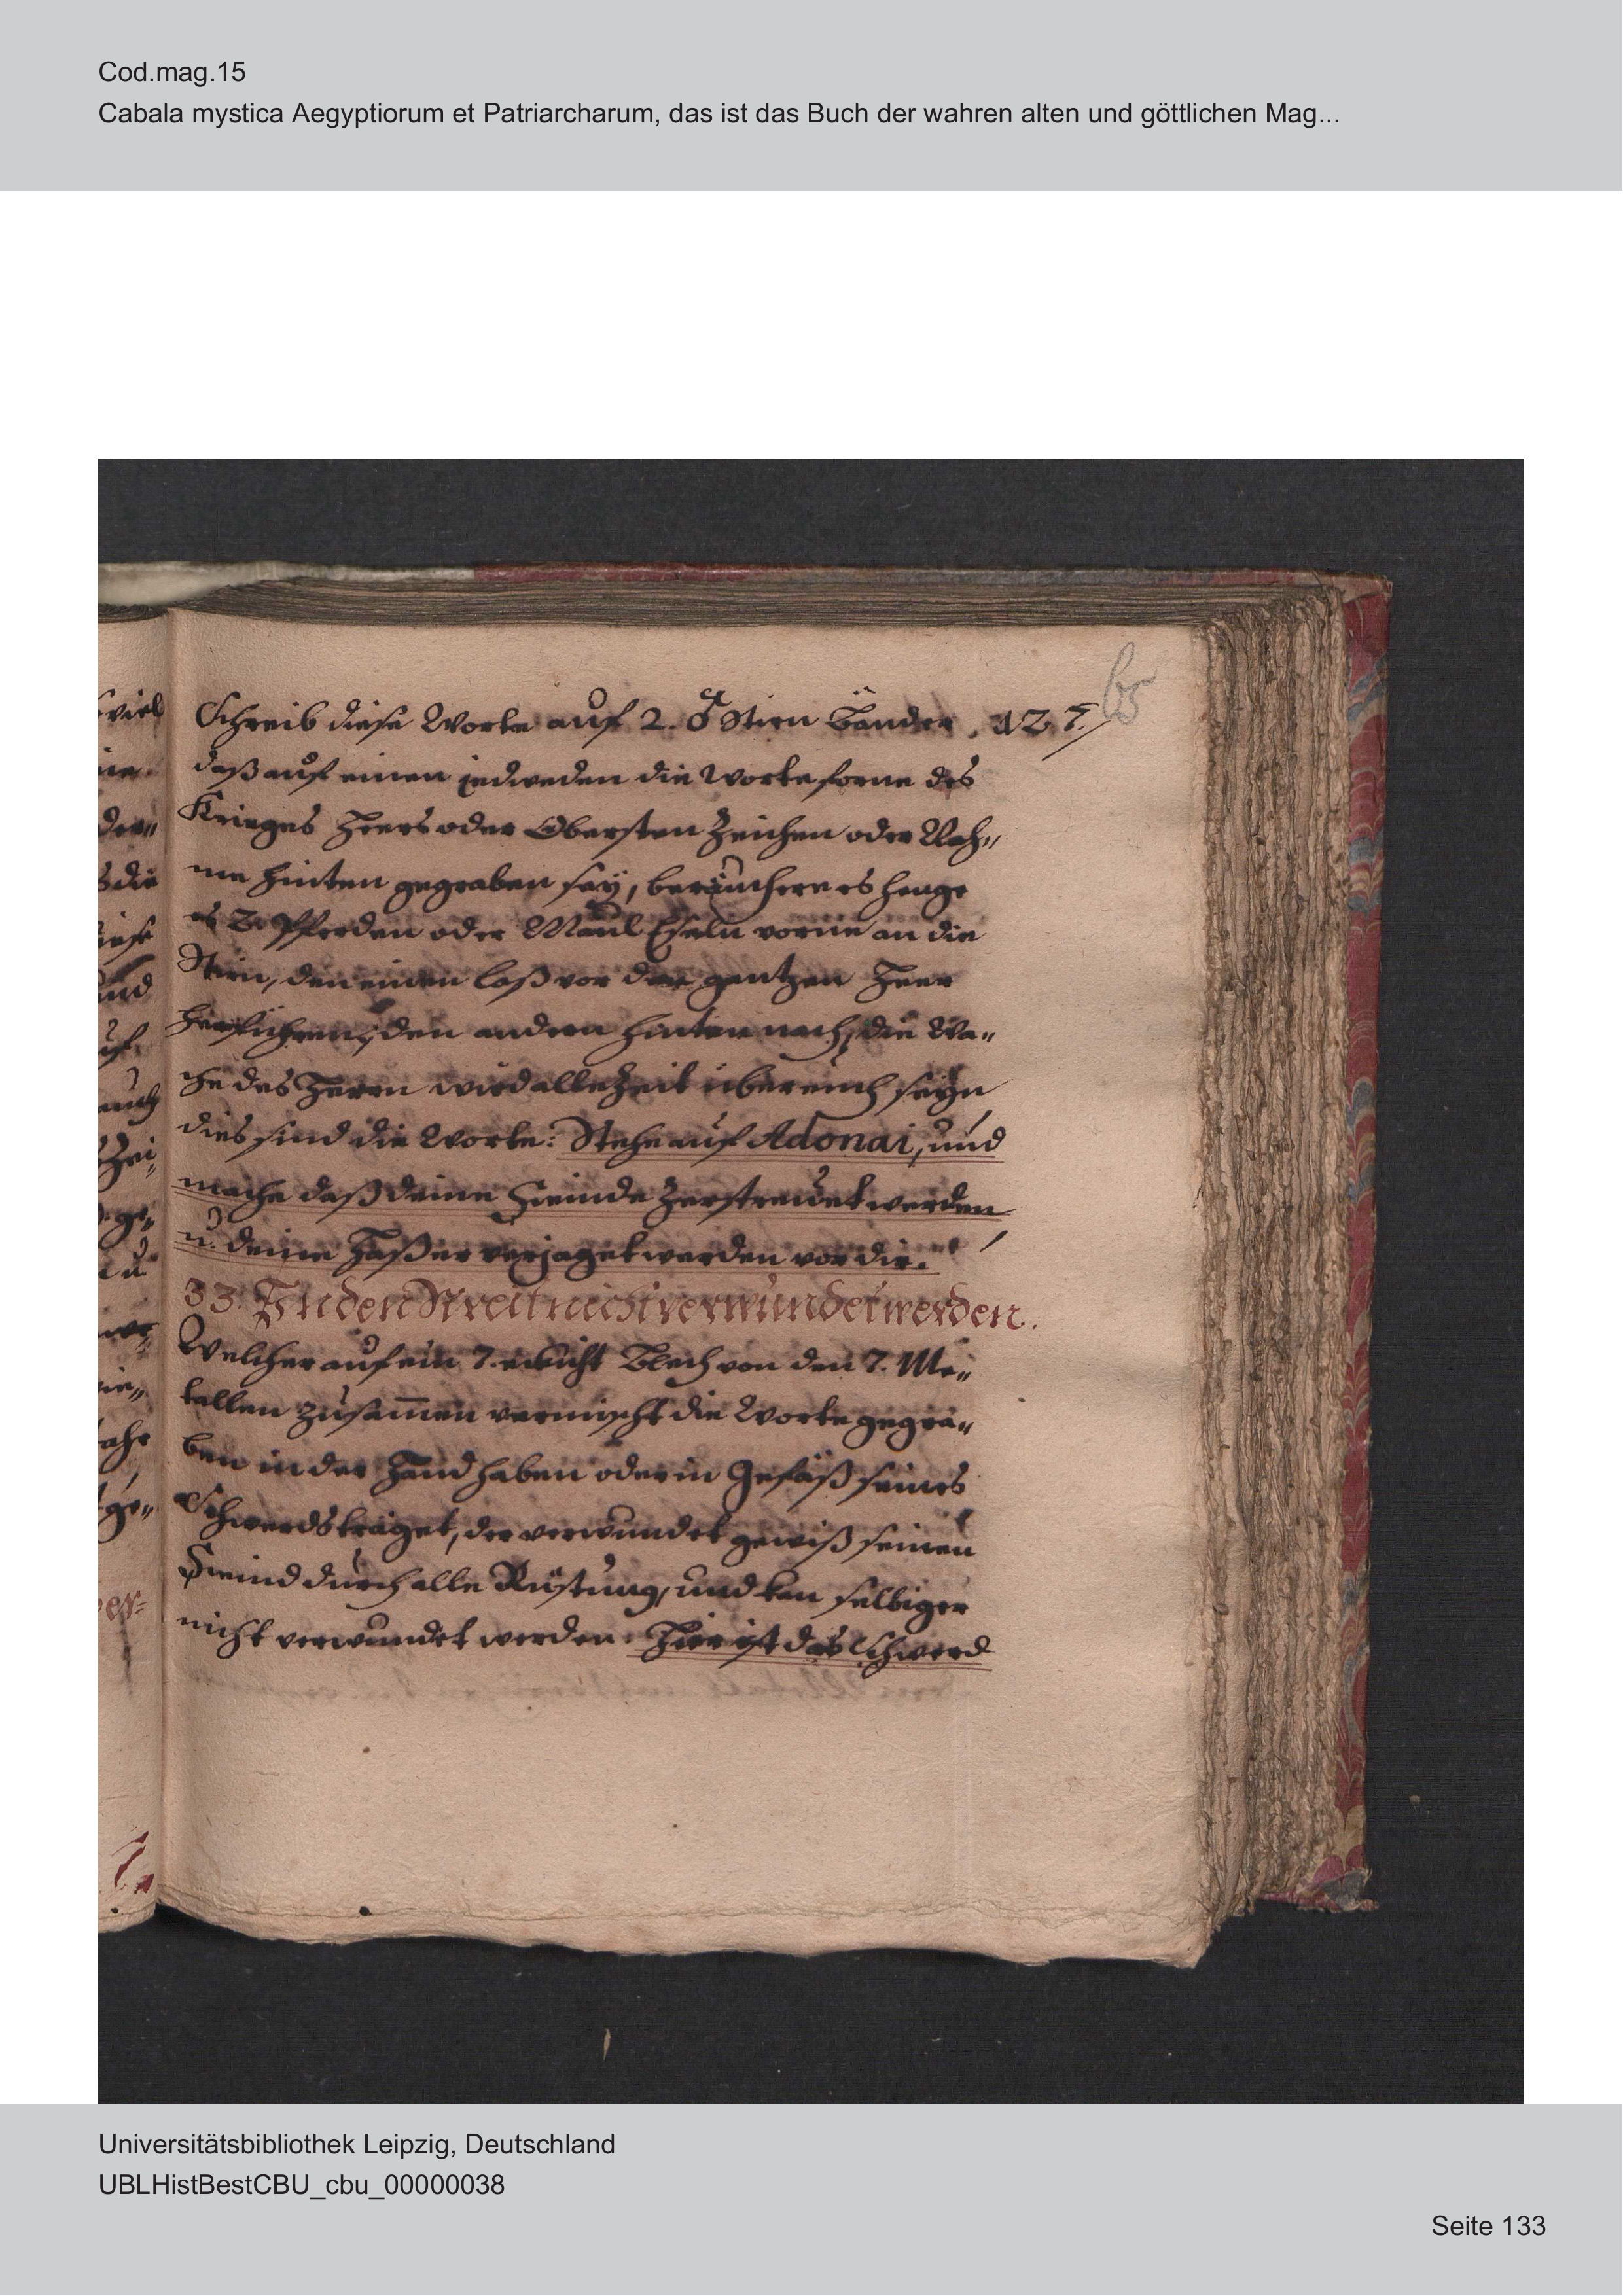 Cod.mag.15
Cabala mystica Aegyptiorum et Patriarcharum, das ist das Buch der wahren alten und göttlichen Mag...
65
Schreib diese Worte auf 2. ♂ Stirn Bänder, 127.
daß auf einen jedweden die Worte forne des
Krieges Heers oder Obersten Zeichen oder Nah„
me hinten gegraben sey, beräuchere es henge
es 2. Pferden oder Maul Eseln vorne an die
Stirn, den einen laß vor den gantzen Heer
herführen, den andern hinten nach, die Wa„
che des Herrn wird alle Zeit über euch seyn
dies sind die Worte: Stehe auf Adonai, und
mache daß deine Feinde Zerstreuet werden
u. deine Haßer verjaget werden vor dir.
33. In den Streit nicht verwundet werden.
Welcher auf ein 7. eckicht Blech von den 7. Me„
tallen zusam̄en vermischt die Worte gegra„
ben in der Hand haben oder in Gefäß seines
Schwerds träget, der verwundet gewiß seinen
Feind durch alle Rüstung, und kan selbiger
nicht verwundet werden. Hier ist das Schwerd
Universitätsbibliothek Leipzig, Deutschland
UBLHistBestCBU_cbu_00000038
Seite 133